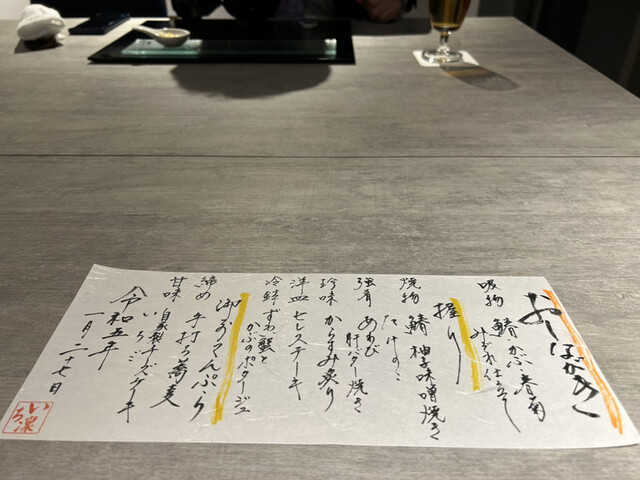 おしながき
吸物 鰆 かぶ 春菊
みぞれ仕立て
握り
焼物 鰆 柚子味噌焼き
たけのこ
強肴 あわび
肝バター焼き
珍味 からすみ炙り
洋皿 ヒレステーキ
冷鉢 ずわい蟹と
かぶのポタージュ
御おてんぷら
締め 手打ち蕎麦
甘味 自家製チーズケーキ
いちご
令和五年
一月二十七日